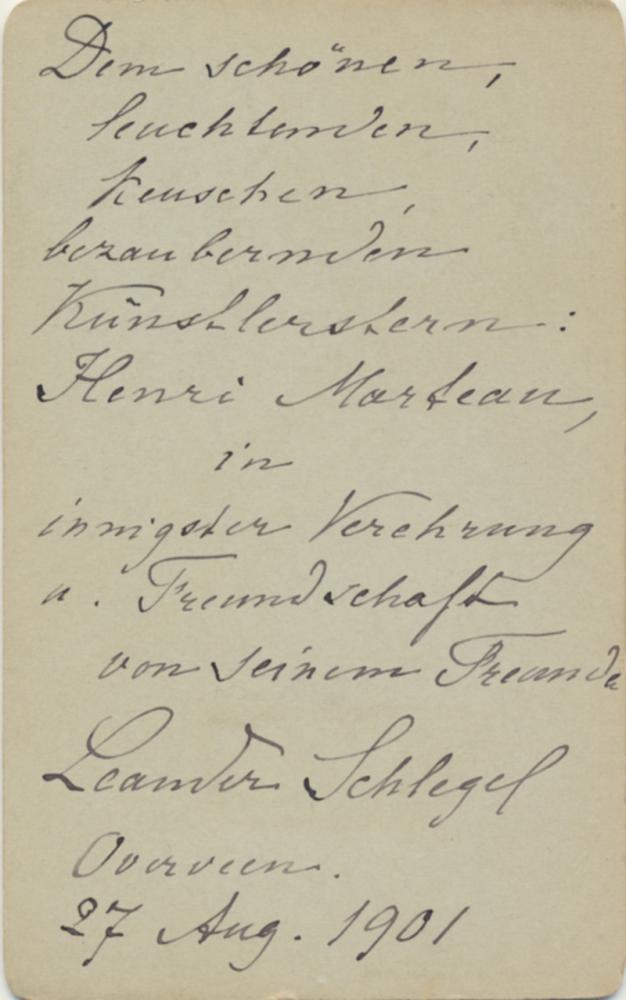 Dem schönen,
leuchtenden,
keuschen,
bezaubernden
Künstlerstern:
Henri Marteau,
in
innigster Verehrung
u. Freundschaft
von seinem Freunde
Leander Schlegel
Overveen.
27 Aug. 1901